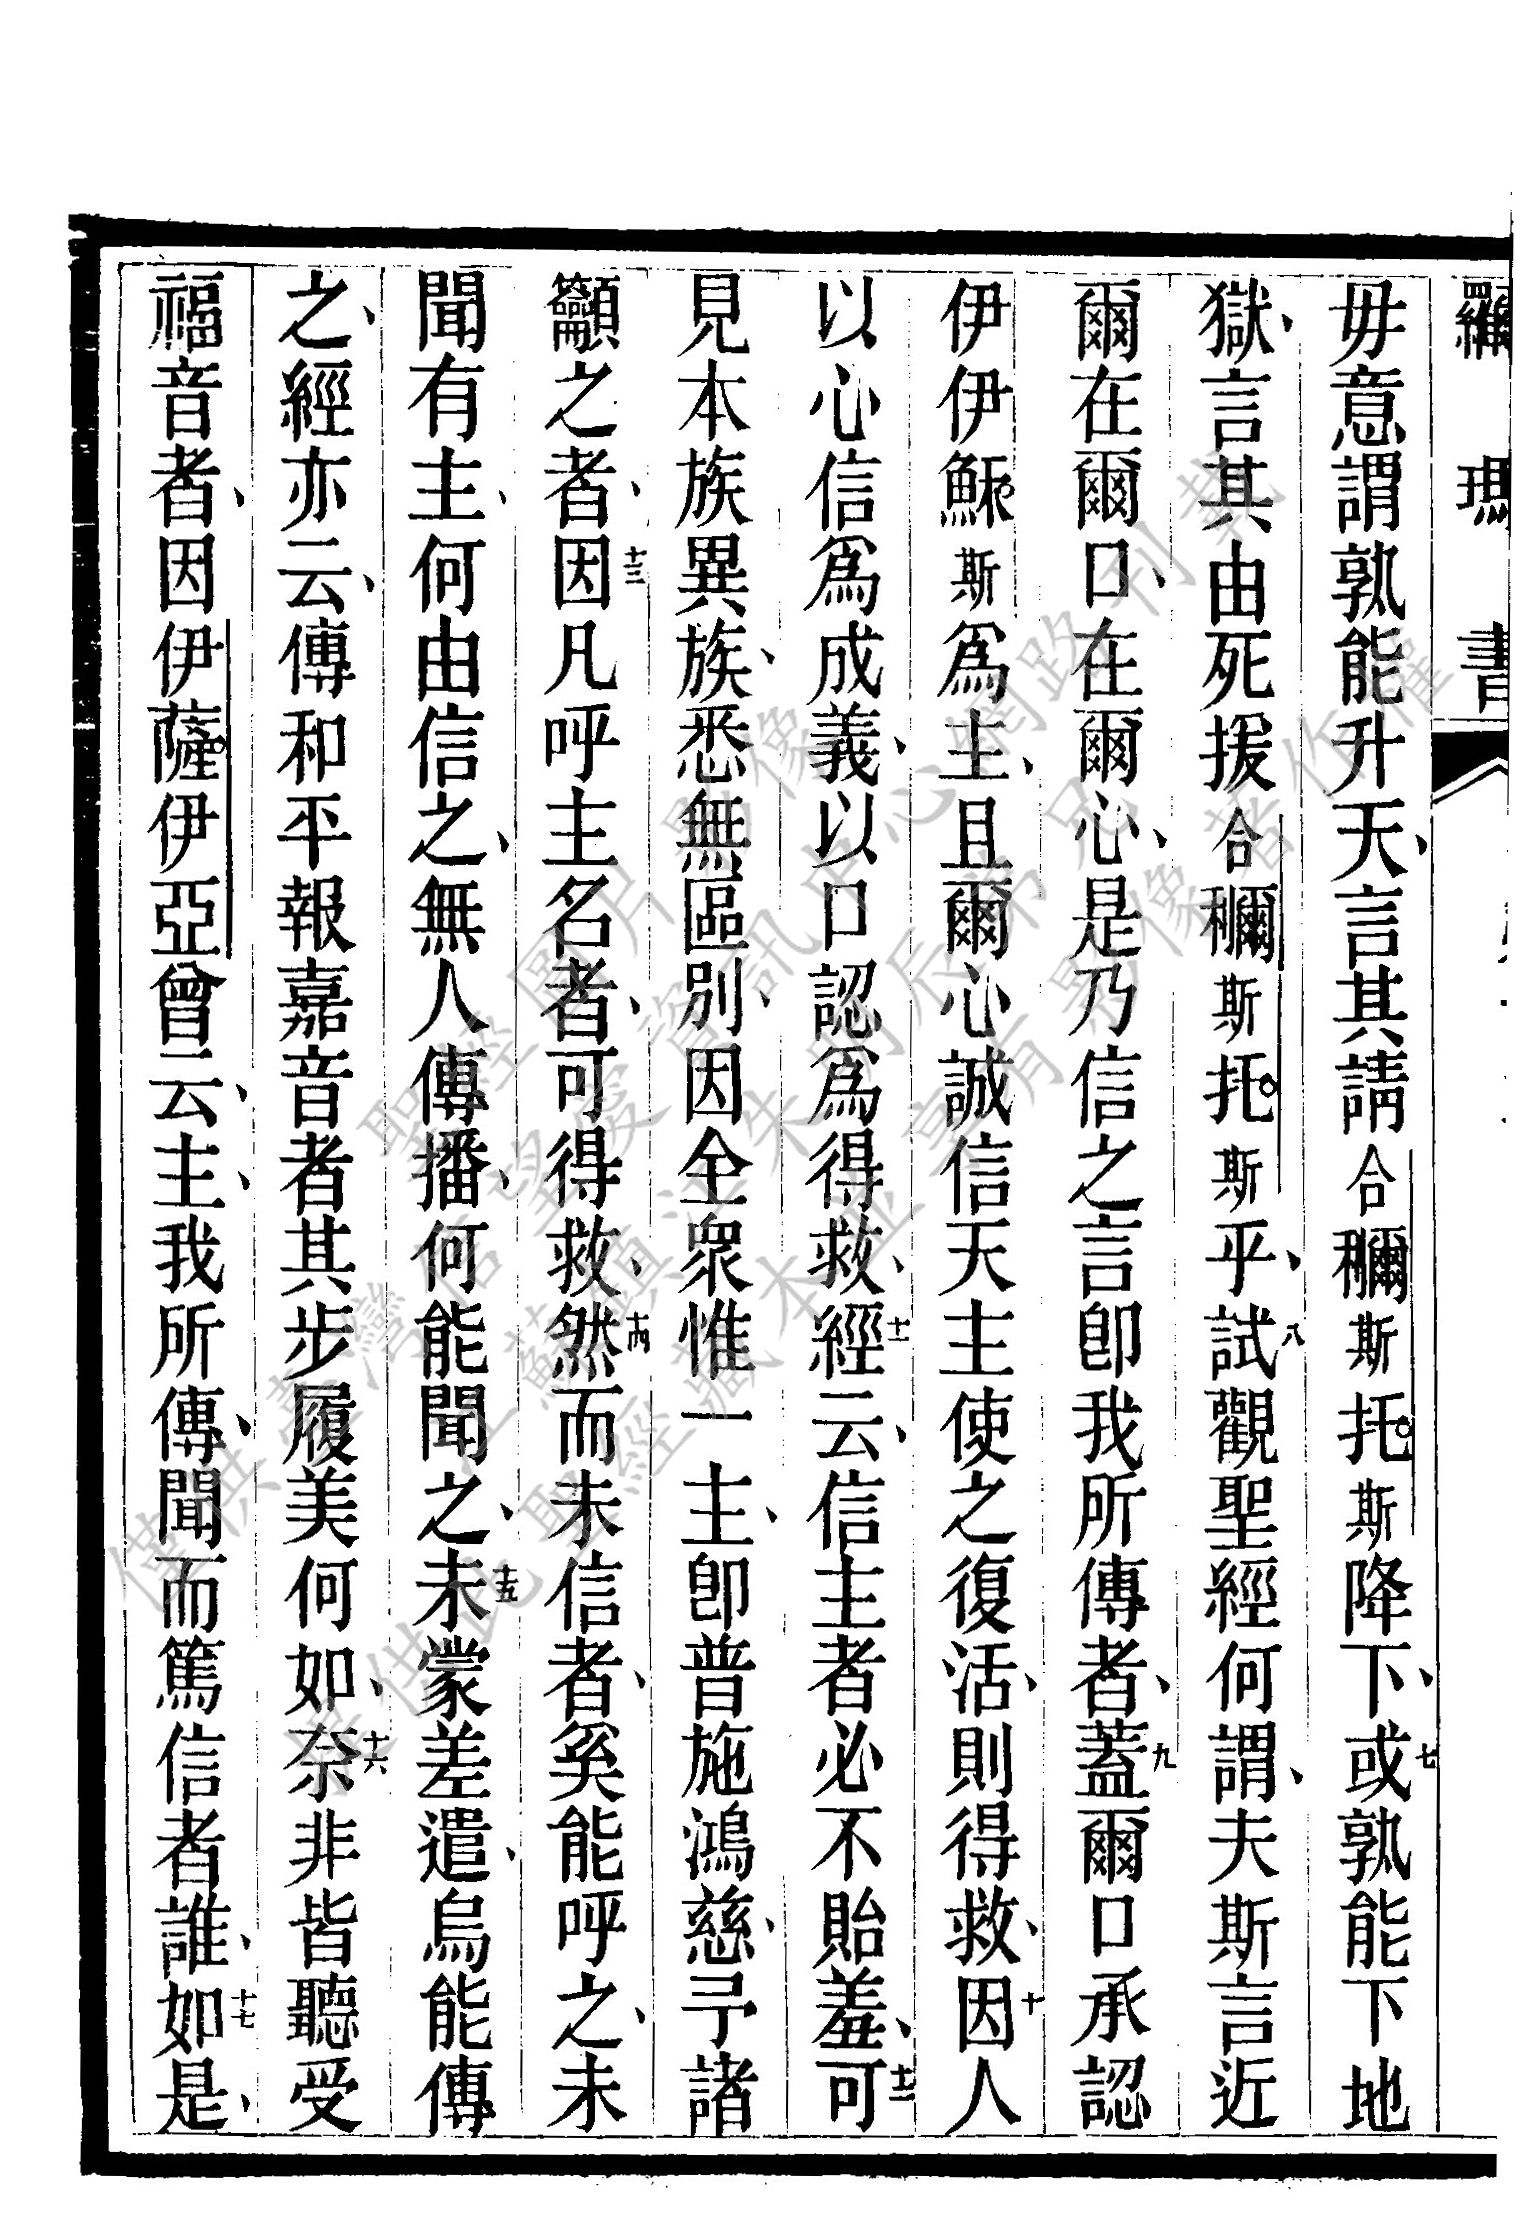 羅瑪書
毋意謂孰能升天、言其請合𥣡斯托斯降下、七或孰能下地
獄、言其由死援合𥣡斯托斯乎、八試觀聖經何謂、夫斯言近
爾在爾口、在爾心、是乃信之言卽我所傳者、九蓋爾口承認
伊伊穌斯爲主、且爾心誠信天主使之復活、則得救、十因人
以心信爲成義、以口認爲得救、十一經云、信主者必不貽羞、十二可
見本族異族、悉無區別、因全衆惟一主、卽普施鴻慈、予諸
籲之者、十三因凡呼主名者、可得救、十四然而未信者、奚能呼之、未
聞有主、何由信之、無人傳播、何能聞之、十五未蒙差遣、烏能傳
之、經亦云、傳和平報嘉音者其步履美何如、十六奈非皆聽受
福音者、因伊薩伊亞曾云、主、我所傳、聞而篤信者誰、十七如是、
僅供臺灣信望愛資訊中心網路刊載